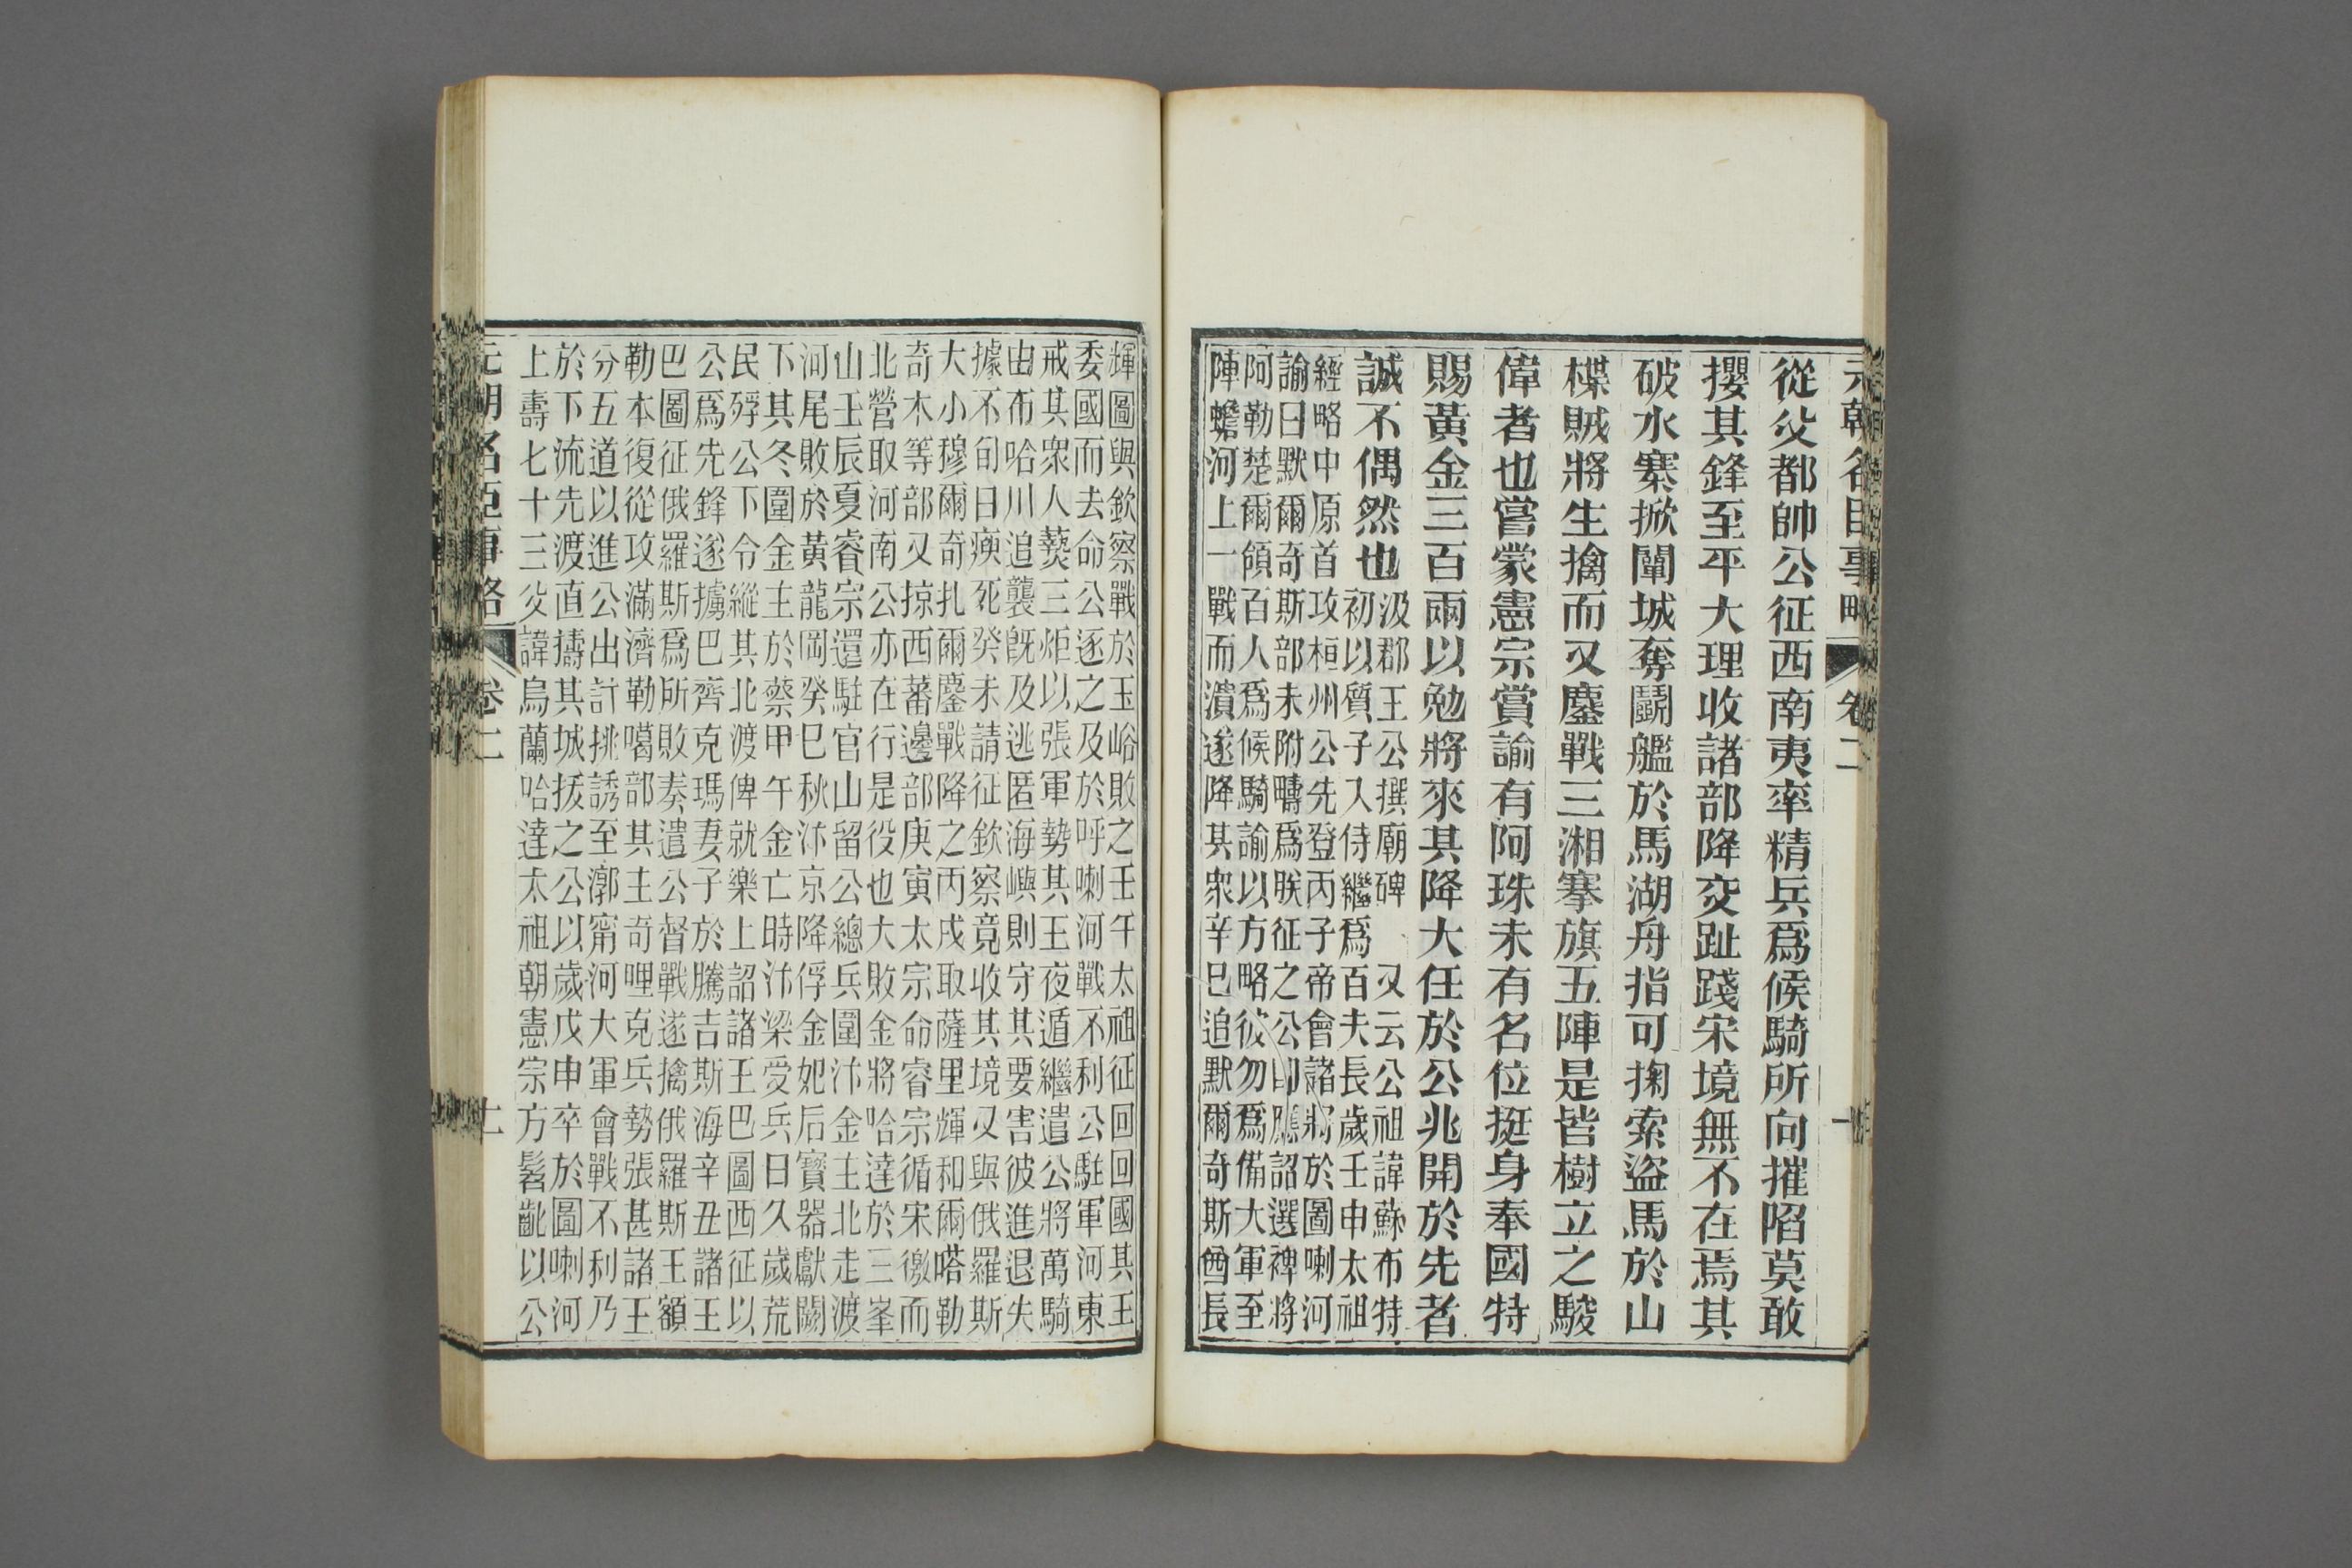 元朝名臣事略 卷二
從父都帥公征西南夷率精兵爲候騎所向摧陷莫敢
攖其鋒至平大理收諸部降交趾踐宋境無不在焉其
破水寨掀闡城奪鬭艦於馬湖舟指可掬索盜馬於山
楪賊將生擒而又鏖戰三湘搴旗五陣是皆樹立之駿
偉者也嘗蒙憲宗賞諭有阿珠未有名位挺身奉國特
賜黃金三百兩以勉將來其降大任於公兆開於先者
誠不偶然也
汲郡王公撰廟碑 又云公祖諱蘇布特
初以質子入侍繼爲百夫長歲壬申太祖
經略中原首攻桓州公先登丙子帝會諸將於圖喇河
諭曰默爾奇斯部未附疇爲朕征之公卽應詔選裨將
阿勒楚爾領百人爲候騎諭以方略彼勿爲備大軍至
陣蟾河上一戰而潰遂降其衆辛巳追默爾奇斯酋長
輝圖與欽察戰於玉峪敗之壬午太祖征回回國其王
委國而去命公逐之及於呼喇河戰不利公駐軍河東
戒其衆人爇三炬以張軍勢其王夜遁繼遣公將萬騎
由布哈川追襲旣及逃匿海嶼則守其要害彼進退失
據不旬日瘐死癸未請征欽察竟收其境又與俄羅斯
大小穆爾奇扎爾鏖戰降之丙戌取薩里輝和爾嗒勒
奇木等部又掠西蕃邊部庚寅太宗命睿宗循宋徼而
北營取河南公亦在行是役也大敗金將哈達於三峯
山壬辰夏睿宗還駐官山留公總兵圍汴金主北走渡
河尾敗於黃龍岡癸巳秋汴京降俘金妃后寶器獻闕
下其冬圍金主於蔡甲午金亡時汴梁受兵日久歲荒
民殍公下令縱其北渡俾就樂土詔諸王巴圖西征以
公爲先鋒遂擄巴齊克瑪妻子於騰吉斯海辛丑諸王
巴圖征俄羅斯爲所敗奏遣公督戰遂擒俄羅斯王額
勒本復從攻滿濟勒噶部其主奇哩克兵勢張甚諸王
分五道以進公出計挑誘至漷甯河大軍會戰不利乃
於下流先渡直擣其城拔之公以歲戊申卒於圖喇河
上壽七十三父諱烏蘭哈達太祖朝憲宗方髫齔以公
元朝名臣事略 卷二